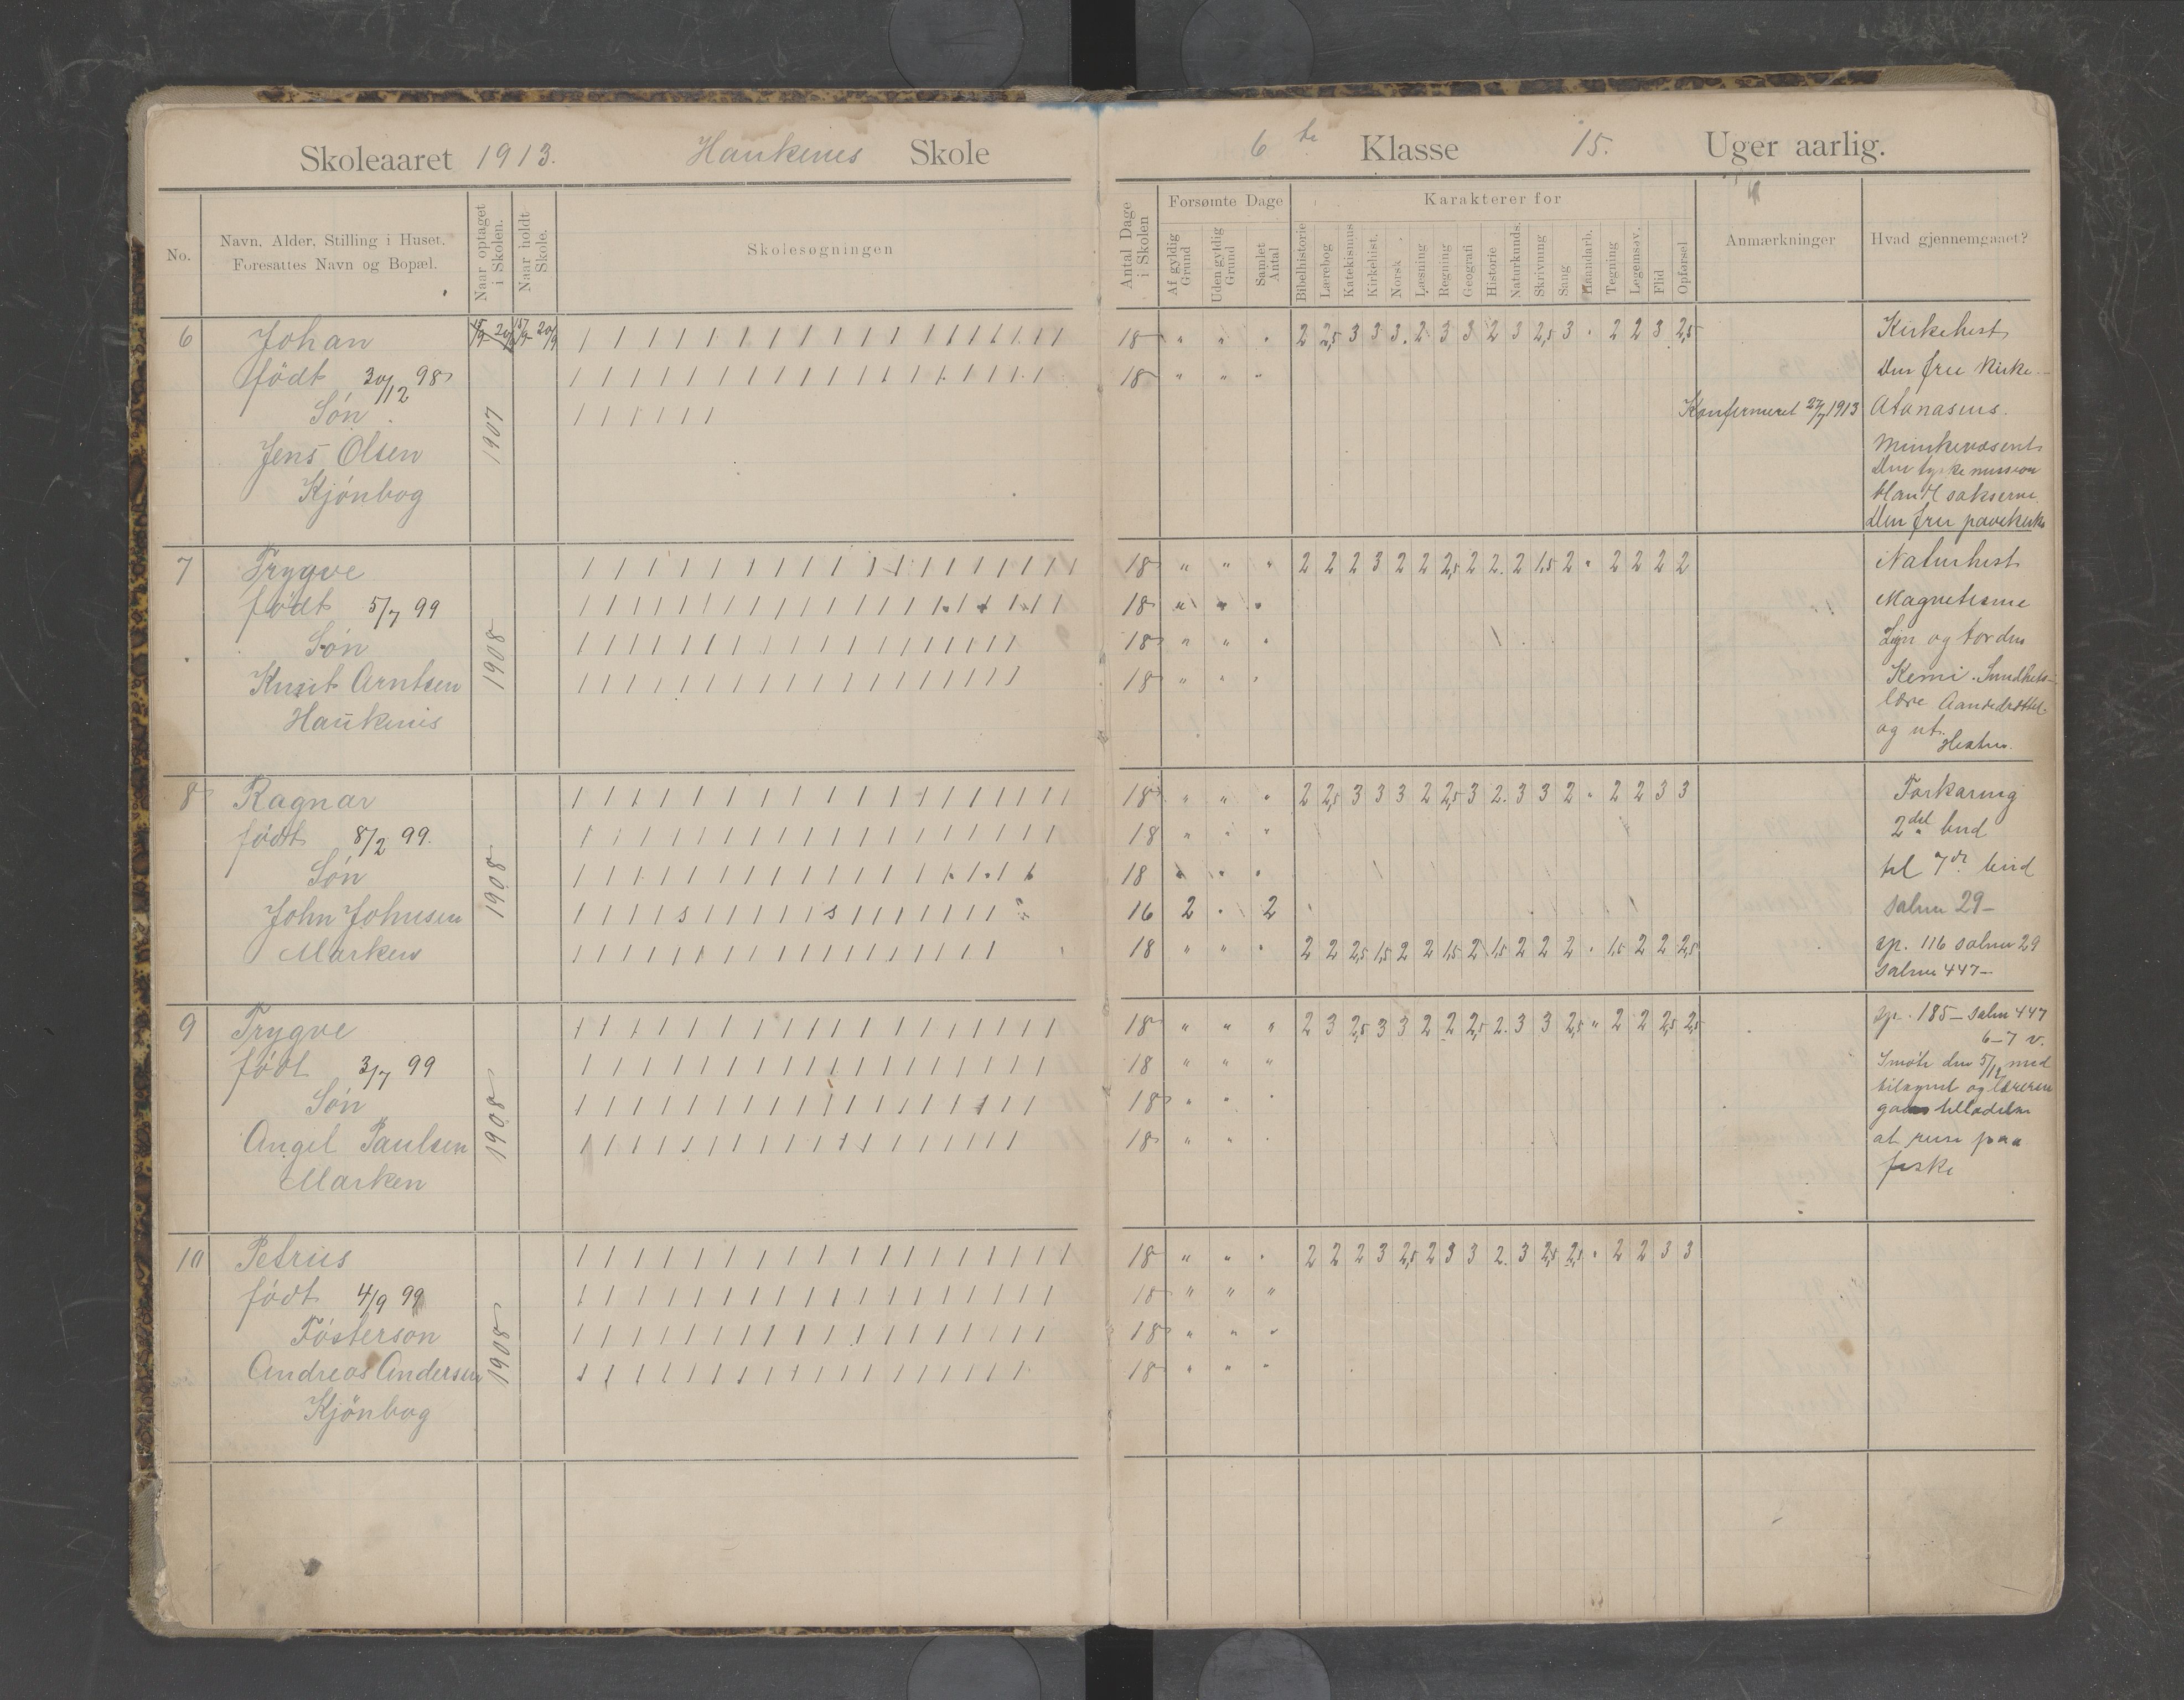 Skoleaaret 1913. Haukenes Skole
No.
Navn, Alder, Stilling i Huset, Foresattes Navn og Bopæl.
Naar optaget i Skolen.
Naar holdt Skole.
Skolesøgningen
6 Johan
født 30/12 98
Søn
Jens Olsen
Kjønbog
1907
7 Trygve
født 5/7 99
Søn
Knut Arntsen
Haukenes
1908
8 Ragnar
født 8/2 99.
Søn
John Johnsen
Marken
1908
9 Trygve
født 3/7 99
Søn
Angel Paulsen
Marken
1908
10 Petrus
født 4/9 99
Fósterson
Andreas Andersen
Kjönbog
1908
6te Klasse 15. Uger aarlig.
Antal Dage i Skolen
Forsømte Dage
Af gyldig Grund
Uden gyldig Grund
Samlet Antal
Karakterer for
Bibelhistorie
Lærebog
Katekismus
Kirkehist.
Norsk
Læsning
Regning
Geografi
Historie
Naturkunds.
Skrivning
Sang
Haandarb.
Tegning
Legemsøv.
Flid
Opførsel
Anmærkninger
Hvad gjennemgaaet?
18 " " " 2 2,5 3 3 3. 2 3 3 2 3 2,5 3 " 2 2 3 2,5 Kirkehist
18 " " " Den frie Kirke
Konfirmeret 27/7 1913 Atanasius.
Munkevæsent
Den tyske mission
blandt sakserne.
Den frie pavekirke
18 " " " 2 2 2 3 2 2 2,5 2 2. 2 1,5 2 " 2 2 2 2 Naturhist
18 " " " Magnetisme
18 " " " Lyn og torden
18 " " " Kemi. Sundheds-
lære Aandedrættet
og ut.
18 " " " 2 2,5 3 3 3 2 2,5 3 2. 3 3 2 " 2 2 3 3 Forklaring
18 " " " 2det bud
18 " " " til 7de bud
16 2 " 2 Salme 29-
18 " " " 2 2 2,5 1,5 2 2 1,5 2 1,5 2 2 2 " 1,5 2 2 2,5 sp. 116 salme 29
salme 447-
18 " " " 2 3 2,5 3 3 2 2 2,5 2. 3 3 2,5 " 2 2 2,5 2,5 sp. 185 - salm 447
6-7 v.
18 " " " Smøte den 5/12 med
tilsynet og læreren
18 " " " tilladelse
18 " " " at reise paa
fiske
18 " " " 2 2 2 3 2,5 2 3 3 2. 3 2,5 2,5 " 2 2 3 3
18 " " "
18 " " "
18 " " "